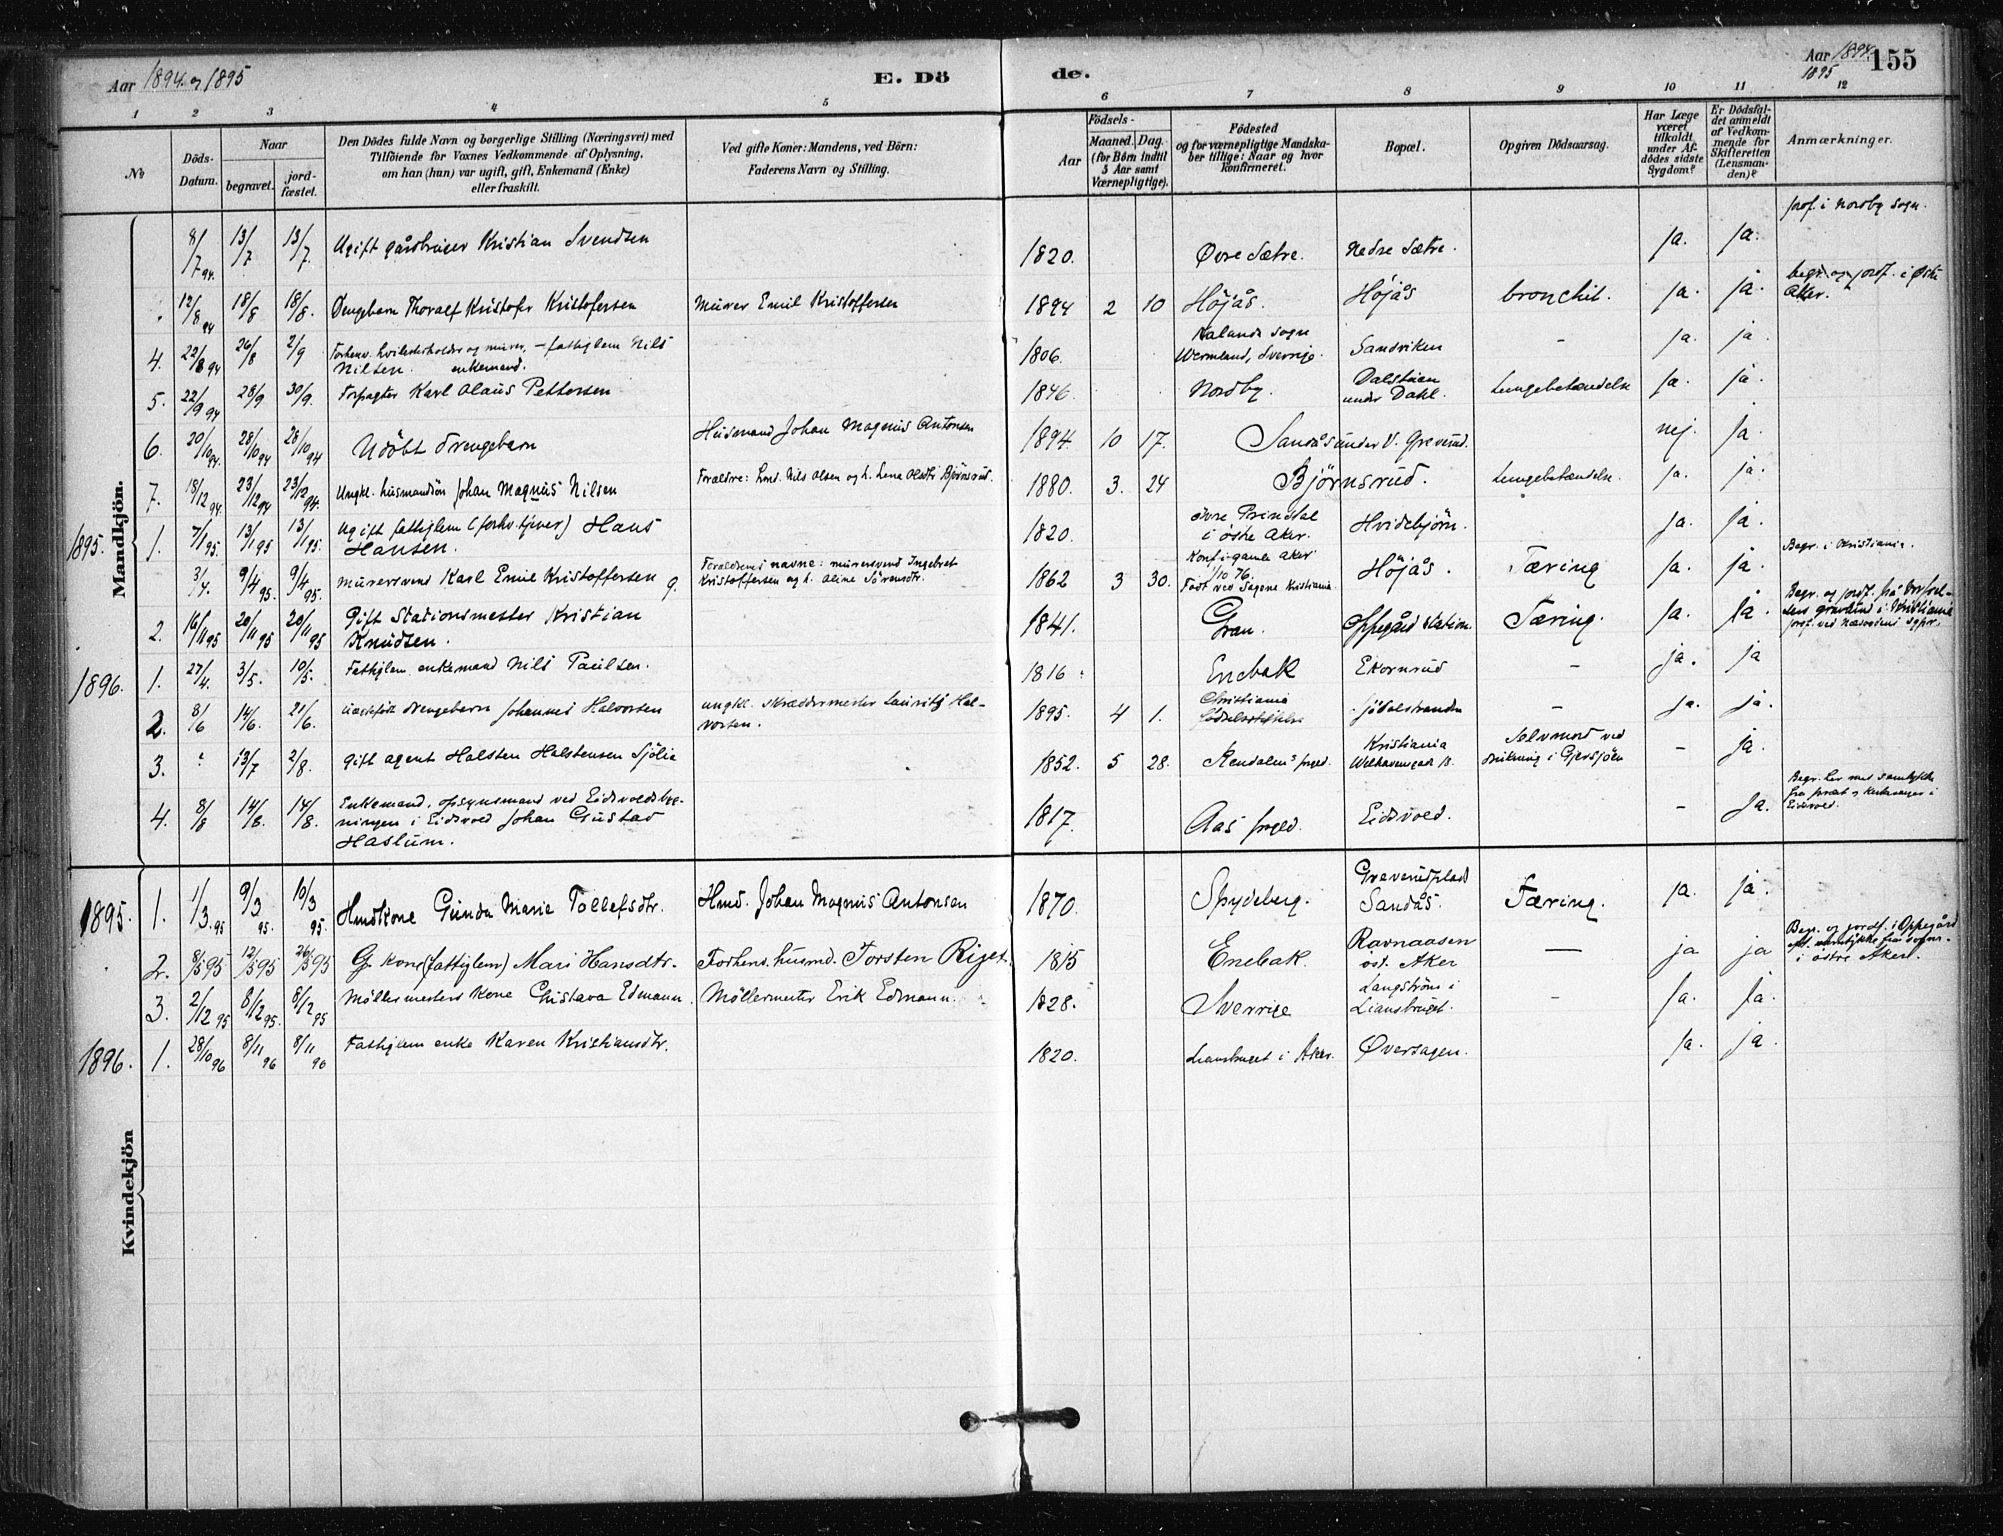 Aar 1894 og 1895
E. Dö
de.
Aar 1894
1895
155
1 2 3 4 5 6 7 8 9 10 11 12
No
Döds-
Datum.
Naar
begravet.
jord-
fæstet.
Den Dödes fulde Navn og borgerlige Stilling (Næringsvei) med
Tilföiende for Voxnes Vedkommende af Oplysning,
om han (hun) var ugift, gift, Enkemand (Enke)
eller fraskilt.
Ved gifte Koner: Mandens, ved Börn:
Faderens Navn og Stilling.
Födsels-
Aar
Maaned. Dag.
(for Börn indtil
5 Aar samt
Værnepligtige).
Födested
og for værnepligtige Mandska-
ber tillige: Naar og hvor
konfirmeret.
Bopæl.
Opgiven Dödsaarsag.
Har Læge
været
tilkaldt
under Af-
dödes sidste
Sygdom?
Er Dödsfal-
det anmeldt
af Vedkom-
mende for
Skifteretten
(Lensman-
den)?
Anmærkninger.
Mandkjön.
8/7 94. 13/7 13/7. Ugift gårdbruger Kristian Svendsen 1820. Øvre Sætre. Nedre Sætre. ja. ja. jordf. i Nordby sogn.
12/8 94 18/8 18/8. Drengebarn Thoralf Kristofer Kristofersen Murer Emil Kristoffersen 1894 2 10 Höjås. Höjås bronchit. ja. ja. begr. og jordf. i Østre
Aker.
4. 22/8 94 26/8 2/9 Forhenv. hvilesteholder og murer, - fattiglem Nils
Nilsen. enkemand. 1806. sogn
Wermland, Sverrige. Sandviken - ja. ja
5. 22/9 94 28/9 30/9. Forpagter Karl Olaus Pettersen 1846 Nordby. Dalstuen
under Dahl. Lungebetændelse ja. ja.
6. 20/10 94. 28/10 94 28/10 94 Udöbt drengebarn Husmand Johan Magnus Antonsen 1894. 10 17. Sandås under V. Greverud. nej. ja.
7. 18/12 94. 23/12 94 23/12 94. Ungkl. husmandsön Johan Magnus Nilsen Forældre: Nils Olsen og h. Lene Olsdtr Björnsrud. 1880. 3. 24 Björnsrud. Lungebetændelse. ja. ja.
1895. 1. 7/1 95. 13/1 95 13/1 95. Ugift fattiglem (forhv. tjener) Hans
Hansen. 1820. Øvre Prindal
i østre Aker. Hvidebjörn. ja. ja.
3/4. 9/4 95. 9/4 95. Murersvend Karl Emil Kristoffersen g. Forældrenes navne: murersvend Ingebret
Kristoffersen og h. Aline Sörensdtr. 1862 3 30. Konf. i gamle Aker
1/10 76.
Født ved Sagene Kristiania. Höjås. Tæring ja. ja. Begr. i Kristiania.
2. 16/11 95 20/11 95 20/11 95 Gift Stationsmester Kristian
Knudsen. 1841. Gran. Oppegård station. Tæring. ja. ja. Begr. og jordf. på Vor frel-
sers gravlund i Kristiania
1896. 1. 27/4. 3/5. 10/5. Fattiglem enkemand Nils Paulsen. 1816 Enebak Ekornrud - ja. ja
2. 8/6 14/6. 21/6. drengebarn Johannes Halvorsen ungkl. skræddermester Lauritz Hal-
vorsen. 1895. 4 1. Christiania
fødselsstiftelse Gjödalstranden - ja. ja.
3. 13/7 2/8. Gift agent Halsten Halstensen Sjölie 1852. 5 28. Rendalens prgjd. Kristiania
Welhavensgade 18. Selvmord ved
drukning i Gjersjöen - ja.
4. 8/8 14/8. 14/8. Enkemand, opsynsmand ved Eidsvoldsbyg-
ningen i Eidsvold Johan Gustad
Haslum. 1817. Aas prgjd. Eidsvold. - ja. Begr. her med samtykke
fra præst og kirkesanger i
Eidsvold.
Kvindekjön
1895 1. 1/3. 95 9/3 95. 10/3 95. Hmdkone Gunda Marie Tollefsdtr. Hmd. Johan Magnus Antonsen 1870. Spydeberg. Greverudplads
Sandås. Tæring. ja. ja.
2. 8/5 95 12/5 95 26/5 95 G. kone (fattiglem) Mari Hansdtr. Forhenv. husmd. Torsten Riget. 1815 Enebak. Ravnaasen
öst. Aker — ja ja Begr. og jordf. i Oppegård
eft. samtykke fra sogn.
i østre Aker.
3. 2/12 95 8/12 95. 8/12 95 Möllermesters kone Gustava Edmann. Möllermester Erik Edmann. 1828. Sverrige Langström i
Liansbruget. - ja. ja.
1896. 1. 28/10 96 8/11 96 8/11 96 Fattiglem enke Karen Kristiansdtr. 1820. Liansbruget i Aker. Øversagen. ja. ja.